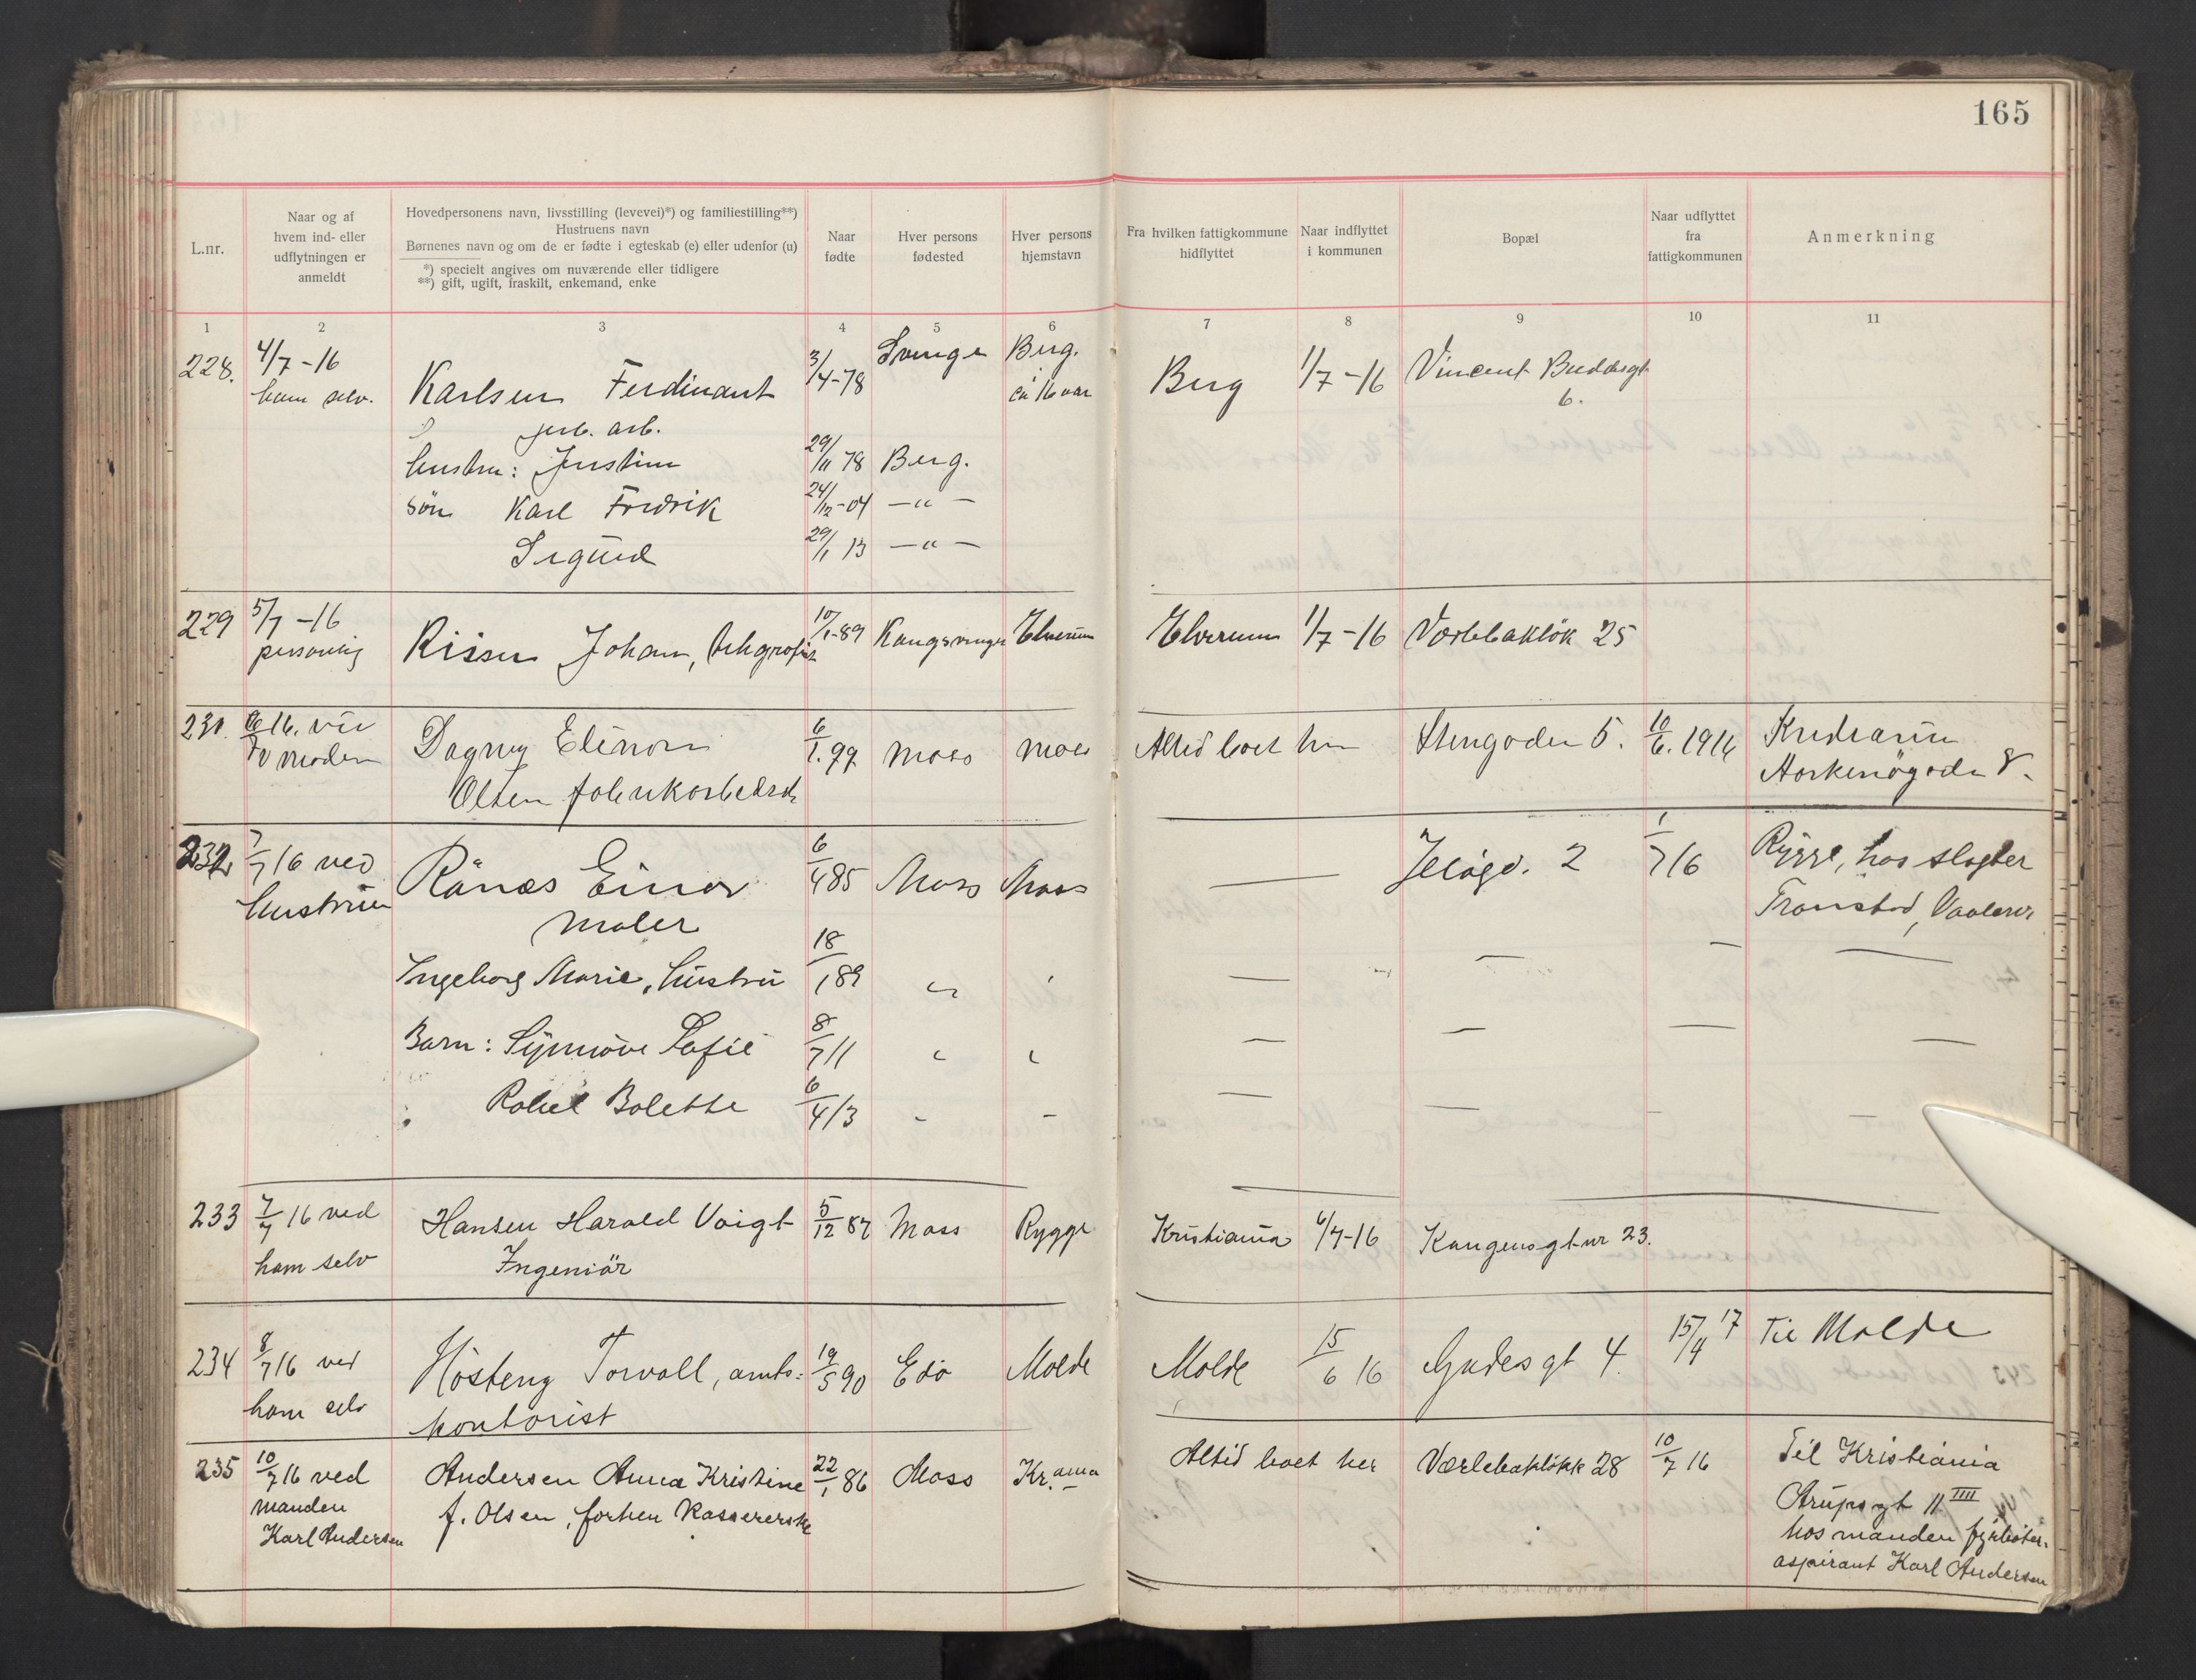 165
L.nr.
Naar og af
hvem ind- eller
udflytningen er
anmeldt
Hovedpersonens navn, livsstilling (levevei)*) og familiestilling**)
Hustruens navn
Børnenes navn og om de er fødte i egteskab (e) eller udenfor (u)
*) specielt angives om nuværende eller tidligere
**) gift, ugift, fraskilt, enkemand, enke
Naar
fødte
Hver persons
fødested
Hver persons
hjemstavn
Fra hvilken fattigkommune
hidflyttet
Naar indflyttet
i kommunen
Bopæl
Naar udflyttet
fra
fattigkommunen
Anmerkning
1 2 3 4 5 6 7 8 9 10 11
228. 4/7-16 Karlsen Ferdinant 3/4-78 Berg. Berg 1/7-16 Vincent Buddesgt
ham selv. ca 16 aar 6.
arb.
hustru: Justine 29/11 78 Berg.
sön Karl Fredrik 24/12-04 —"—
Sigurd 29/1 13 —"—
229 5/7-16 Rissen Johan, telegrafist 10/1-89 Kongsvinger Elverum Elverum 1/7-16 Værlebakløk 25
personlig
231. 16. Dagny Elinora 6/1.99 Moss Moss Altid boet her Stengaden 5. 10/6.1916 Kristiania
moderen Olsen fabrikarbeiderske 8.
232. 7/7 16 ved Rånæs Einar 6/4 85 Moss Moss — Jeløgd. 2 1/7 16 Rygge, hos slagter
hustruen maler Tronstad, Vaaler
Ingeborg Marie, hustru 18/1 89 " ' — — — —
Barn: Synnöve Sofie 8/7 11 " " — — — —
Rakel Bolette 6/4 13 - - — — — —
233 7/7 16 ved Hansen Harald Voigt 5/12 87 Moss Rygge Kristiania 6/7-16 Kongensgt nr 23.
ham selv Ingeniör
234 8/7 16 ved Hösteng Torvall, amts- 19/5 90 Edö Molde Molde 15/6 16 Gudesgt 4. 15/4 17 Til Molde
ham selv kontorist
235 10/7 16 ved Andersen Anna Kristine 22/1 86 Moss Kr.ania Altid boet her Værlebakløkk 28 10/7 16 Til Kristiania
manden f. Olsen, forhen Kassererske Arupsgt 11 IIII
Karl Andersen hos manden fyrbøter-
aspirant Karl Andersen